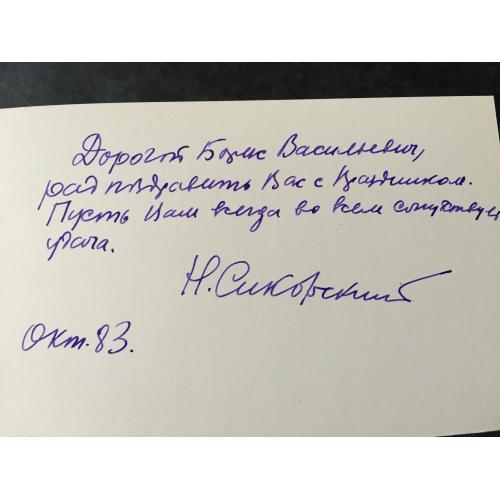 Дорогой Борис Васильевич,
рад поздравить Вас с Праздником.
Пусть Вам всегда во всем сопутствует
удача.
Н. Сикорский
Окт. 83.